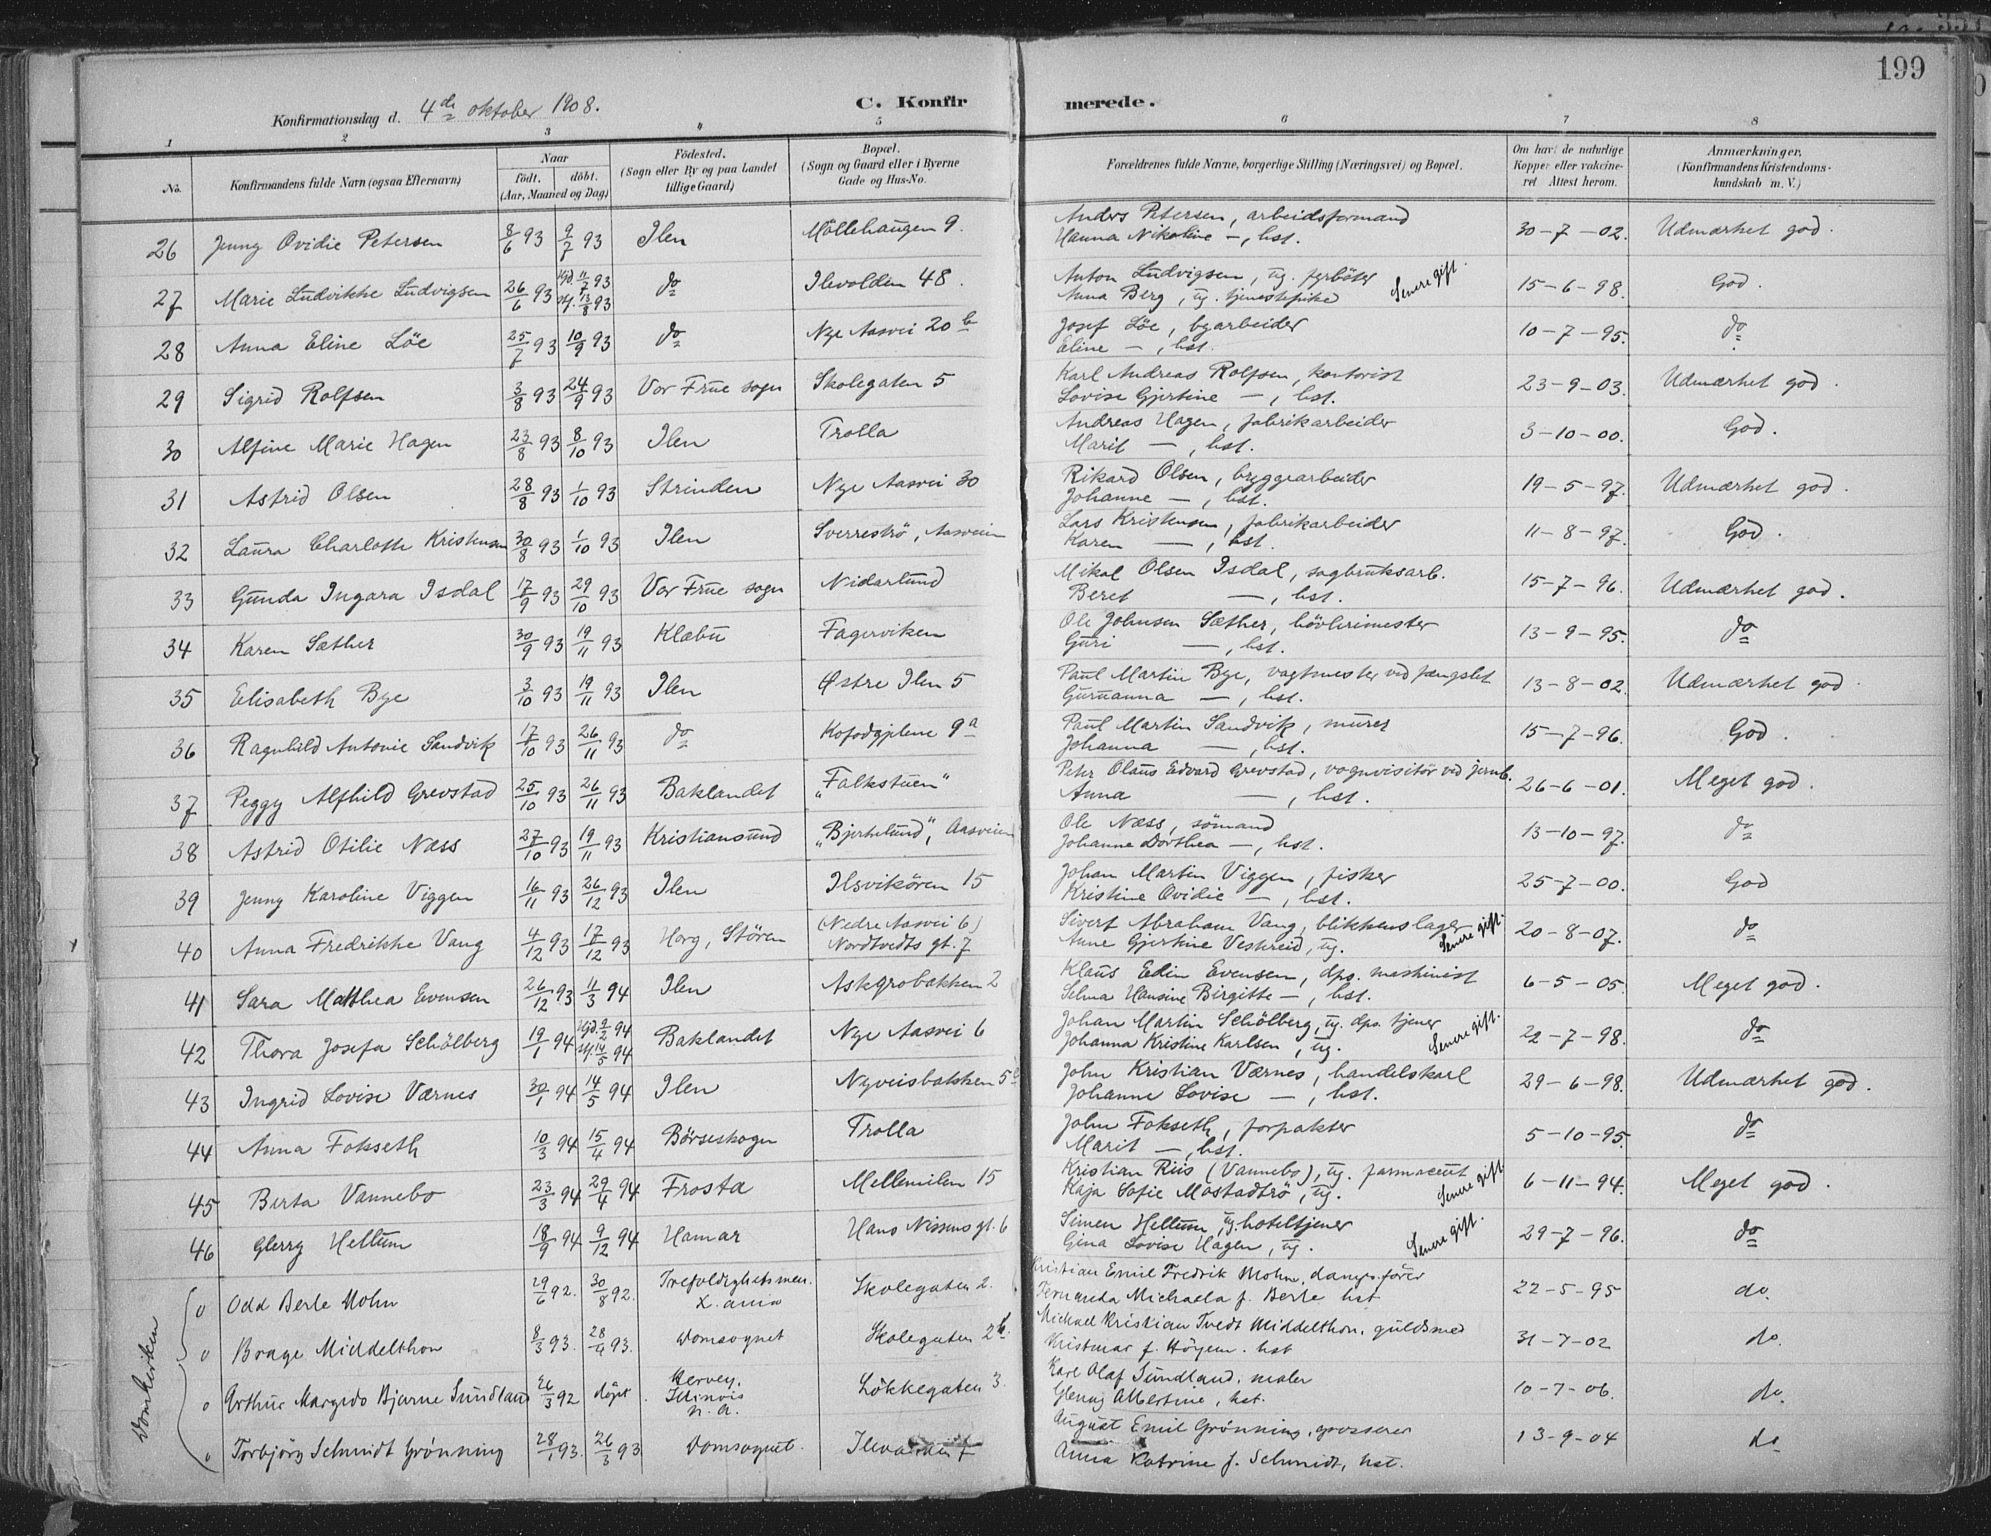 199
Konfirmationsdag d. 4de oktober 1908.
C. Konfirmerede.
1 2 3 4 5 6 7 8
No. Konfirmandens fulde Navn (ogsaa Efternavn) Naar født. døbt. (Aar, Maaned og Dag) Fødested. (Sogn eller By og paa Landet tillige Gaard) Bopæl. (Sogn og Gaard eller i Byerne Gade og Hus-No. Forældrenes fulde Navne, borgerlige Stilling (Næringsvei) og Bopæl. Om havt de naturlige Kopper eller vaccineret Attest herom. Anmærkninger, (Konfirmandens Kristendomskundskab m. V.)
26 Jenny Ovidie Petersen 8/6 93 9/7 93 Ilen Möllehaugen 9. Anders Petersen, arbeidsformand 30-7-02. Udmærket god.
Hanna Nikoline —, hst.
27 Marie Ludvikke Ludvigsen 26/6 93 Hjd. 11/7 93 do Ilevolden 48. Anton Ludvigsen, ug. fyrböter Senere gift. 15-6-98. God.
13/8 93 Anna Berg, ug. tjenestepike
28 Anna Eline Löe 25/7 93 10/9 93 do Nye Aasvei 20 b Josef Löe, byarbeider 10-7-95. do
Eline —, hst.
29 Sigrid Rolfsen 3/8 93 24/9 93 Vor Frue sogn Skolegaten 5 Karl Andreas Rolfsen, kontorist 23-9-03. Udmærket god.
Lovise Gjertine —, hst.
30 Alfine Marie Hagen 23/8 93 8/10 93 Ilen Trolla Andreas Hagen, fabrikarbeider 3-10-00. God.
Marit —, hst.
31 Astrid Olsen 28/8 93 1/10 93 Strinden Nye Aasvei 30 Rikard Olsen, bryggearbeider 19-5-97. Udmærket god.
Johanne —, hst.
32 Laura Charlotte Kristensen 30/8 93 1/10 93 Ilen Sverreströ, Aasveien Lars Kristensen, fabrikarbeider 11-8-97. God.
Karen —, hst.
33 Gunda Ingara Isdal 17/9 93 29/10 93 Vor Frue sogn Nidarlund Mikal Olsen Isdal, sagbruksarb. 15-7-96. Udmærket god.
Beret —, hst.
34 Karen Sæther 30/9 93 19/11 93 Klæbu Fagerviken Ole Johnsen Sæther, hövlerimester 13-9-95. do
Guri —, hst.
35 Elisabeth Bye 3/10 93 19/11 93 Ilen Østre Ilen 5 Paul Martin Bye, vagtmester ved fængslet 13-8-02. Udmærket god.
Gurianna —, hst.
36 Ragnhild Antonie Sandvik 17/10 93 26/11 93 do Kofodgjelene 9a Paul Martin Sandvik, murer 15-7-96. God.
Johanna —, hst.
37 Peggy Alfhild Grevstad 25/10 93 26/11 93 Baklandet "Falkstuen" Peter Olaus Edvard Grevstad, vognvisitör ved jernb. 26-6-01. Meget god.
Anna —, hst.
38 Astrid Otilie Næss 27/10 93 19/11 93 Kristiansund "Bjerkelund", Aasveien Ole Næss, sömand 13-10-97. do
Johanne Dorthea —, hst.
39 Jenny Karoline Viggen 16/11 93 26/12 93 Ilen Ilsvikören 15 Johan Martin Viggen, fisker 25-7-00. God
Kristine Ovidie —, hst.
40 Anna Fredrikke Vang 4/12 93 17/12 93 Horg, Stören (Nedre Aasvei 6) Sivert Abraham Vang, blikkenslager Senere gift. 20-8-07. do
Nordtvedts gt. 7 Anne Gjertine Veskreid, ug.
41 Sara Matthea Evensen 26/12 93 11/3 94 Ilen Askgrobakken 2 Klaus Edin Evensen, dps. maskinist 6-5-05. Meget god.
Selma Hansine Birgitte —, hst.
42 Thora Josefa Schölberg 19/1 94 Hjd. 9/2 94 Baklandet Nye Aasvei 6 Johan Martin Schölberg, ug. dps. tjener Senere gift. 22-7-98. do
14/5 94 Johanna Kristine Karlsen, ug.
43 Ingrid Lovise Værnes 30/1 94 14/5 94 Ilen Nyveisbakken 5 John Kristian Værnes, handelskarl 29-6-98. Udmærket god.
Johanne Lovise —, hst.
44 Anna Fokseth 10/3 94 15/4 94 Börseskogn Trolla John Fokseth, forpakter 5-10-95. do
Marit —, hst.
45 Berta Vannebo 23/3 94 29/4 94 Frosta Mellemilen 15 Kristian Riis (Vannebo), ug. farmaceut Senere gift 6-11-94. Meget god.
Kaja Sofie Mostadtrö, ug.
46 Glerry Hellum 18/9 94 9/12 94 Hamar Hans Nissens gt. 6 Simen Hellum, ug. hoteltjener Senere gift. 29-7-96. do
Gina Lovise Hagen, ug.
Domkirken
Odd Berle Mohn 29/6 92. 30/8 92. Trefoldighetsmen. X.ania Skolegaten 2. Kristian Emil Fredrik Mohn, 22-5-95 do.
Fernanda Michaela f. Berle hst
Brage Middelthon 8/3 93. 28/4 93. Domsognet Skolegaten 2b. Michael Kristian Tvedt Middelthon, guldsmed 31-7-02 do.
f. Höyem. hst
Arthur Margido Bjarne Sundland 26/3 92 döpt Hervey, Illinois n.a. Lökkegaten 3. Karl Olaf Sundland, maler 10-7-06. do.
Albertine, hst.
Torbjörg Schmidt Grönning 28/1 93. 26/3 93 Domsognet. August Emil Grönning, grosserer 13-9-04 do
Anna Katrine f. Schmidt, hst.